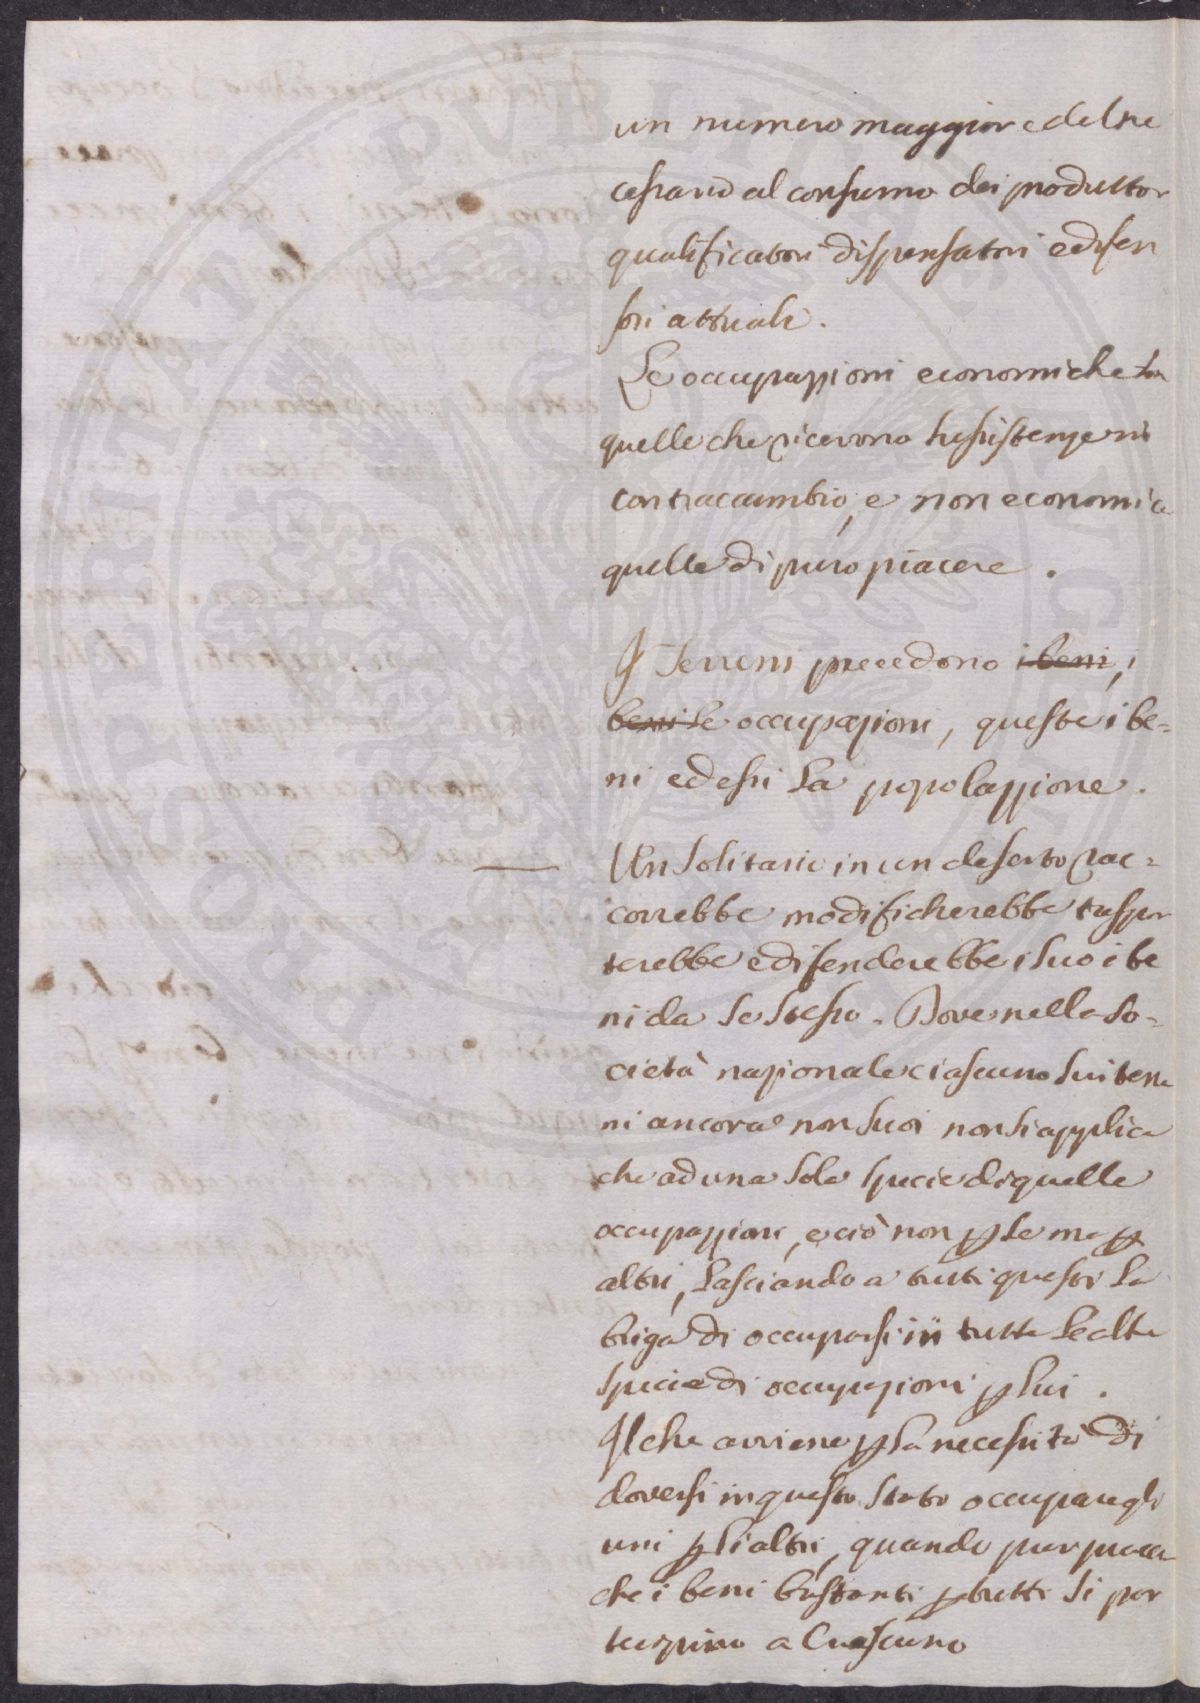 un numero maggiore del ne
cessario al consumo dei produttor
qualificatori dispensatori e difen
sori attuali.
Le occupazzioni economiche son
quelle che ricevono sussistenze in
contraccambio, e non economice
quelle di puro piacere.
I Terreni precedono i beni, i
beni le occupazioni, queste i be=
ni ed essi la popolazzione.
Un solitario in un deserto rac=
correbbe modificherebbe traspor
terebbe e difenderebbe i suoi be
ni da se stesso. Dove nella so=
cietà nazionale ciascuno sui terre
ni ancora non suoi non si applica
che ad una sola specie di quelle
occupazzioni, e ciò non p se ma p
altri, lasciando a tutti questi la
briga di occuparsi in tutte le altre
specie di occupazioni p lui.
Il che avviene p la necessità di
doversi in questo stato occupare gli
uni p li altri, quando pur piaccia
che i beni bastanti p tutti si par
tiscano a Ciascuno
PROSPERITATI PVBLICAE AVGENDAE